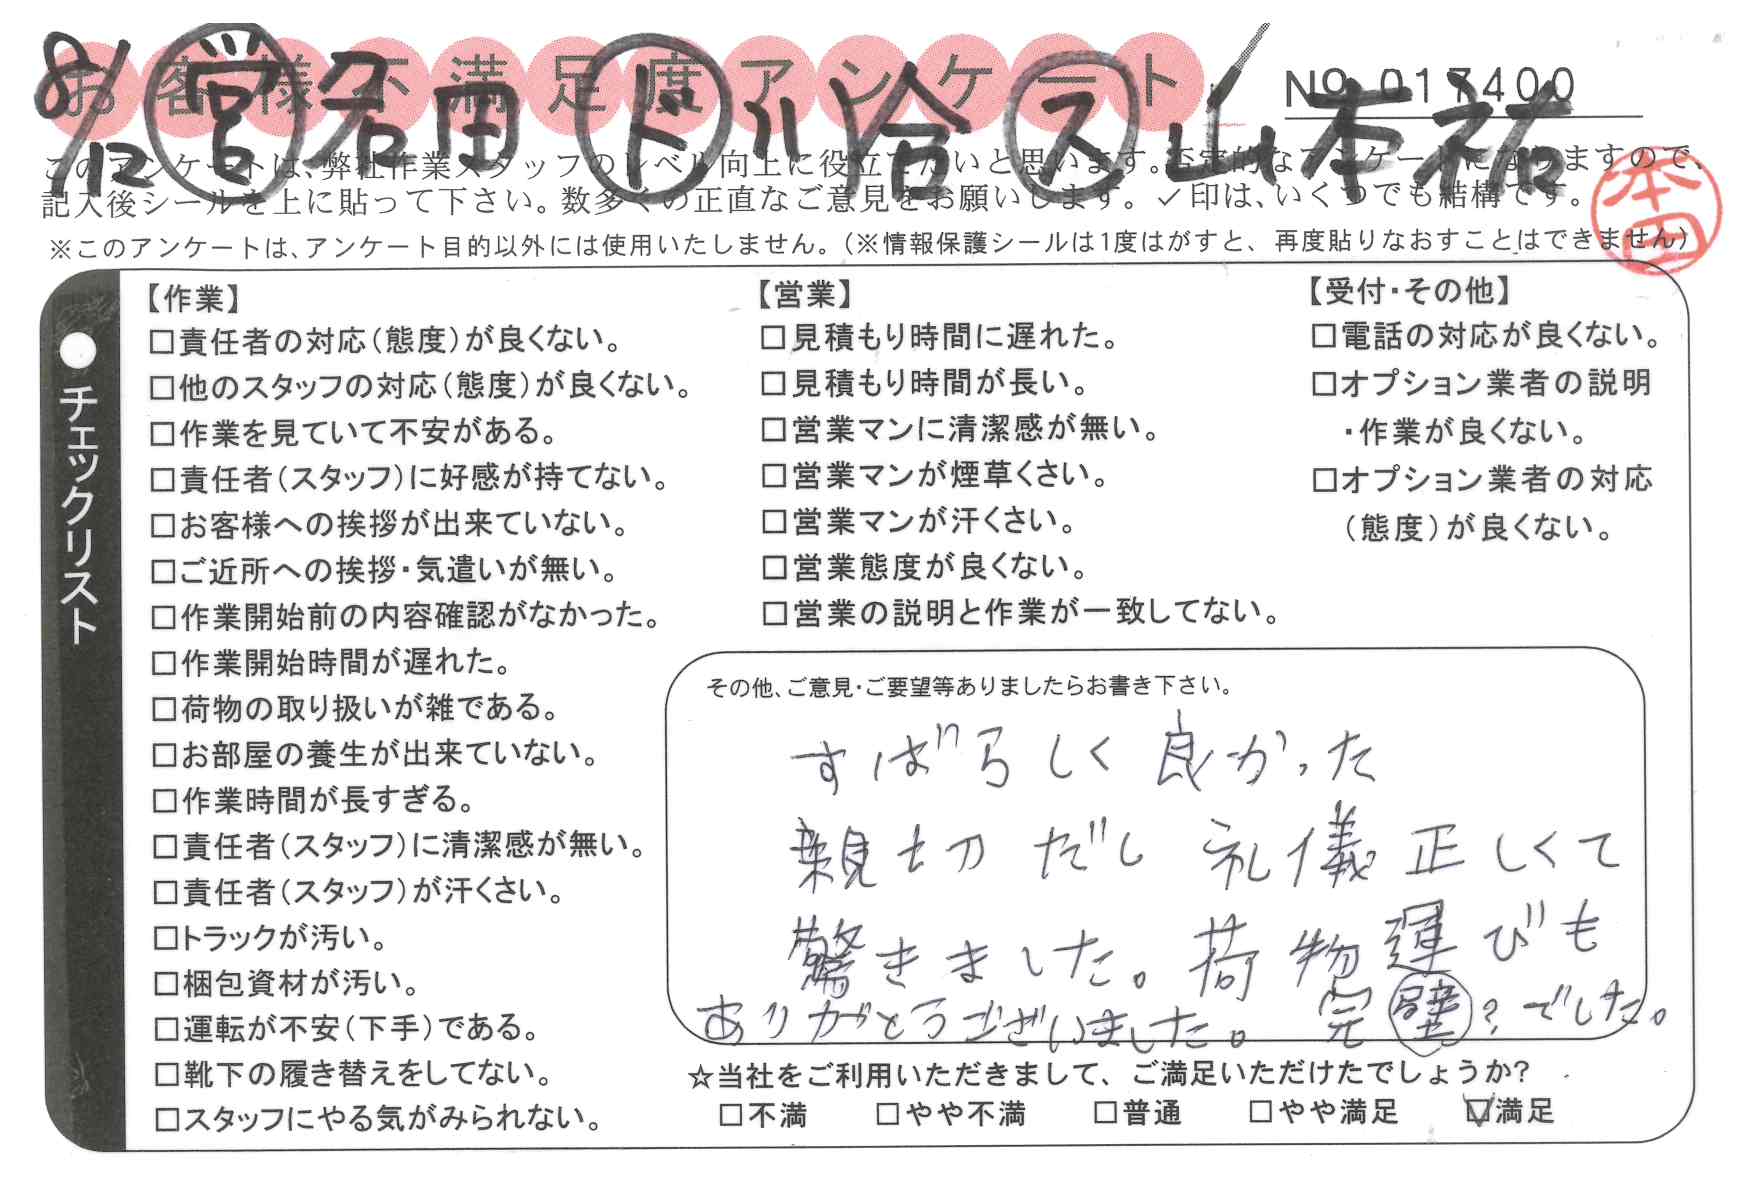 お客様不満足度アンケート
No 017400
8/12 営 名田 ド 川合 ス 山本祐
このアンケートは、弊社作業スタッフのレベル向上に役立てたいと思います。否定的なアンケートになりますので、
記入後シールを上に貼って下さい。数多くの正直なご意見をお願いします。✓印は、いくつでも結構です。
本田
※このアンケートは、アンケート目的以外には使用いたしません。(※情報保護シールは1度はがすと、再度貼りなおすことはできません)
●チェックリスト
【作業】
□責任者の対応(態度)が良くない。
□他のスタッフの対応(態度)が良くない。
□作業を見ていて不安がある。
□責任者(スタッフ)に好感が持てない。
□お客様への挨拶が出来ていない。
□ご近所への挨拶・気遣いが無い。
□作業開始前の内容確認がなかった。
□作業開始時間が遅れた。
□荷物の取り扱いが雑である。
□お部屋の養生が出来ていない。
□作業時間が長すぎる。
□責任者(スタッフ)に清潔感が無い。
□責任者(スタッフ)が汗くさい。
□トラックが汚い。
□梱包資材が汚い。
□運転が不安(下手)である。
□靴下の履き替えをしてない。
□スタッフにやる気がみられない。
【営業】
□見積もり時間に遅れた。
□見積もり時間が長い。
□営業マンに清潔感が無い。
□営業マンが煙草くさい。
□営業マンが汗くさい。
□営業態度が良くない。
□営業の説明と作業が一致してない。
【受付・その他】
□電話の対応が良くない。
□オプション業者の説明
・作業が良くない。
□オプション業者の対応
(態度)が良くない。
その他、ご意見・ご要望等ありましたらお書き下さい。
すばらしく良かった
親切だし礼儀正しくて
驚きました。荷物運びも
完璧?でした。
ありがとうございました。
☆当社をご利用いただきまして、ご満足いただけたでしょうか?
□不満 □やや不満 □普通 □やや満足 ☑満足